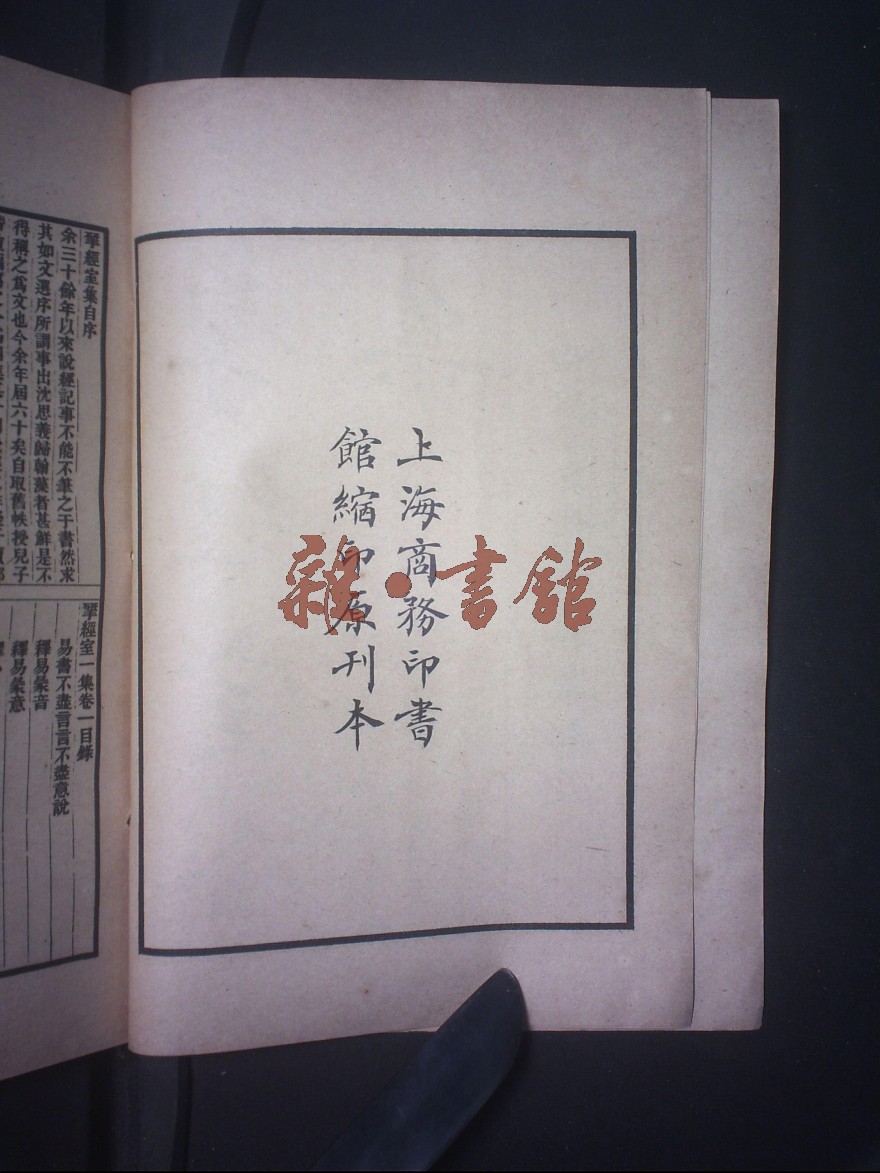 上海商務印書
館縮印原刊本
雜·書館
揅經室集自序
余三十餘年以來說經記事不能不筆之于書然求
其如文選序所謂事出沈思義歸翰藻者甚鮮是不
得稱之爲文也今余年屆六十矣自取舊帙授兒子
揅經室一集卷一目錄
易書不盡言言不盡意說
釋易彖音
釋易彖意